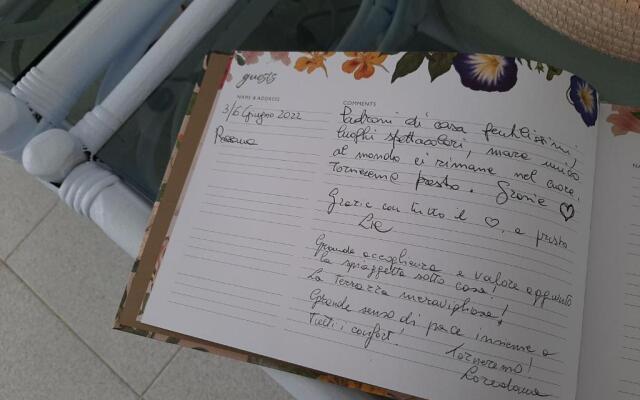 guests
NAME & ADDRESS
COMMENTS
3/6 Giugno 2022
Rosanna
Padroni di casa gentilissimi,
luoghi spettacolari, mare unico
al mondo ci rimane nel cuore,
torneremo presto. Grazie ♡
Grazie con tutto il ♡, a presto
Grande accoglienza e valore aggiunto
la spiaggetta sotto casa!
La terrazza meravigliosa!
Grande senso di pace insieme a
tutti i confort!
Torneremo!
Loredana